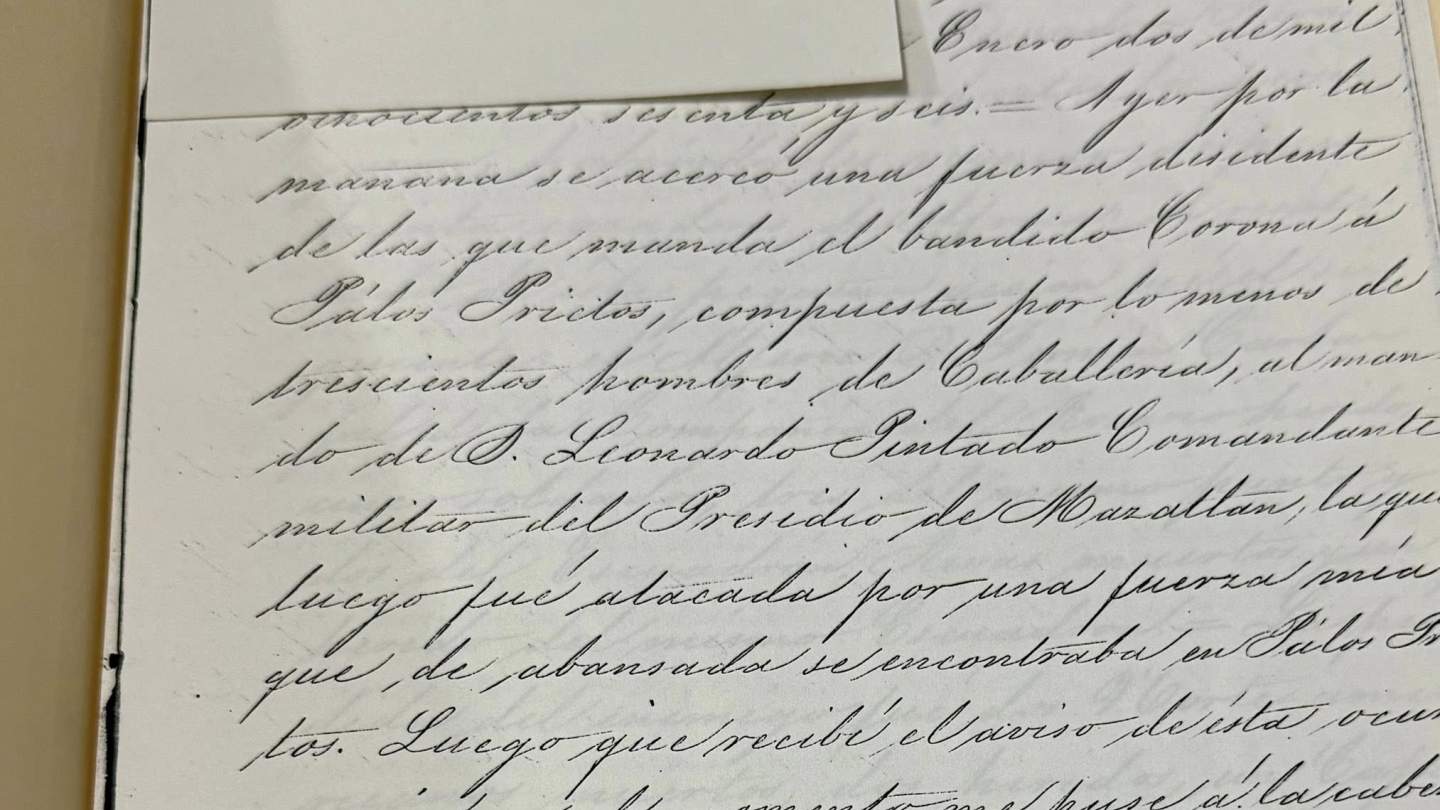 Enero dos de mil
ochocientos sesenta y seis.= Ayer por la
mañana se acercó una fuerza disidente
de las que manda el bandido Corona á
Pálos Prietos, compuesta por lo menos de
trescientos hombres de Caballería, al man
do de D. Leonardo Pintado Comandante
militar del Presidio de Mazatlan, la que
luego fué atacada por una fuerza mia
que de abansada se encontraba en Pálos Pr
tos. Luego que recibí el aviso de ésta
me puse á la cabe